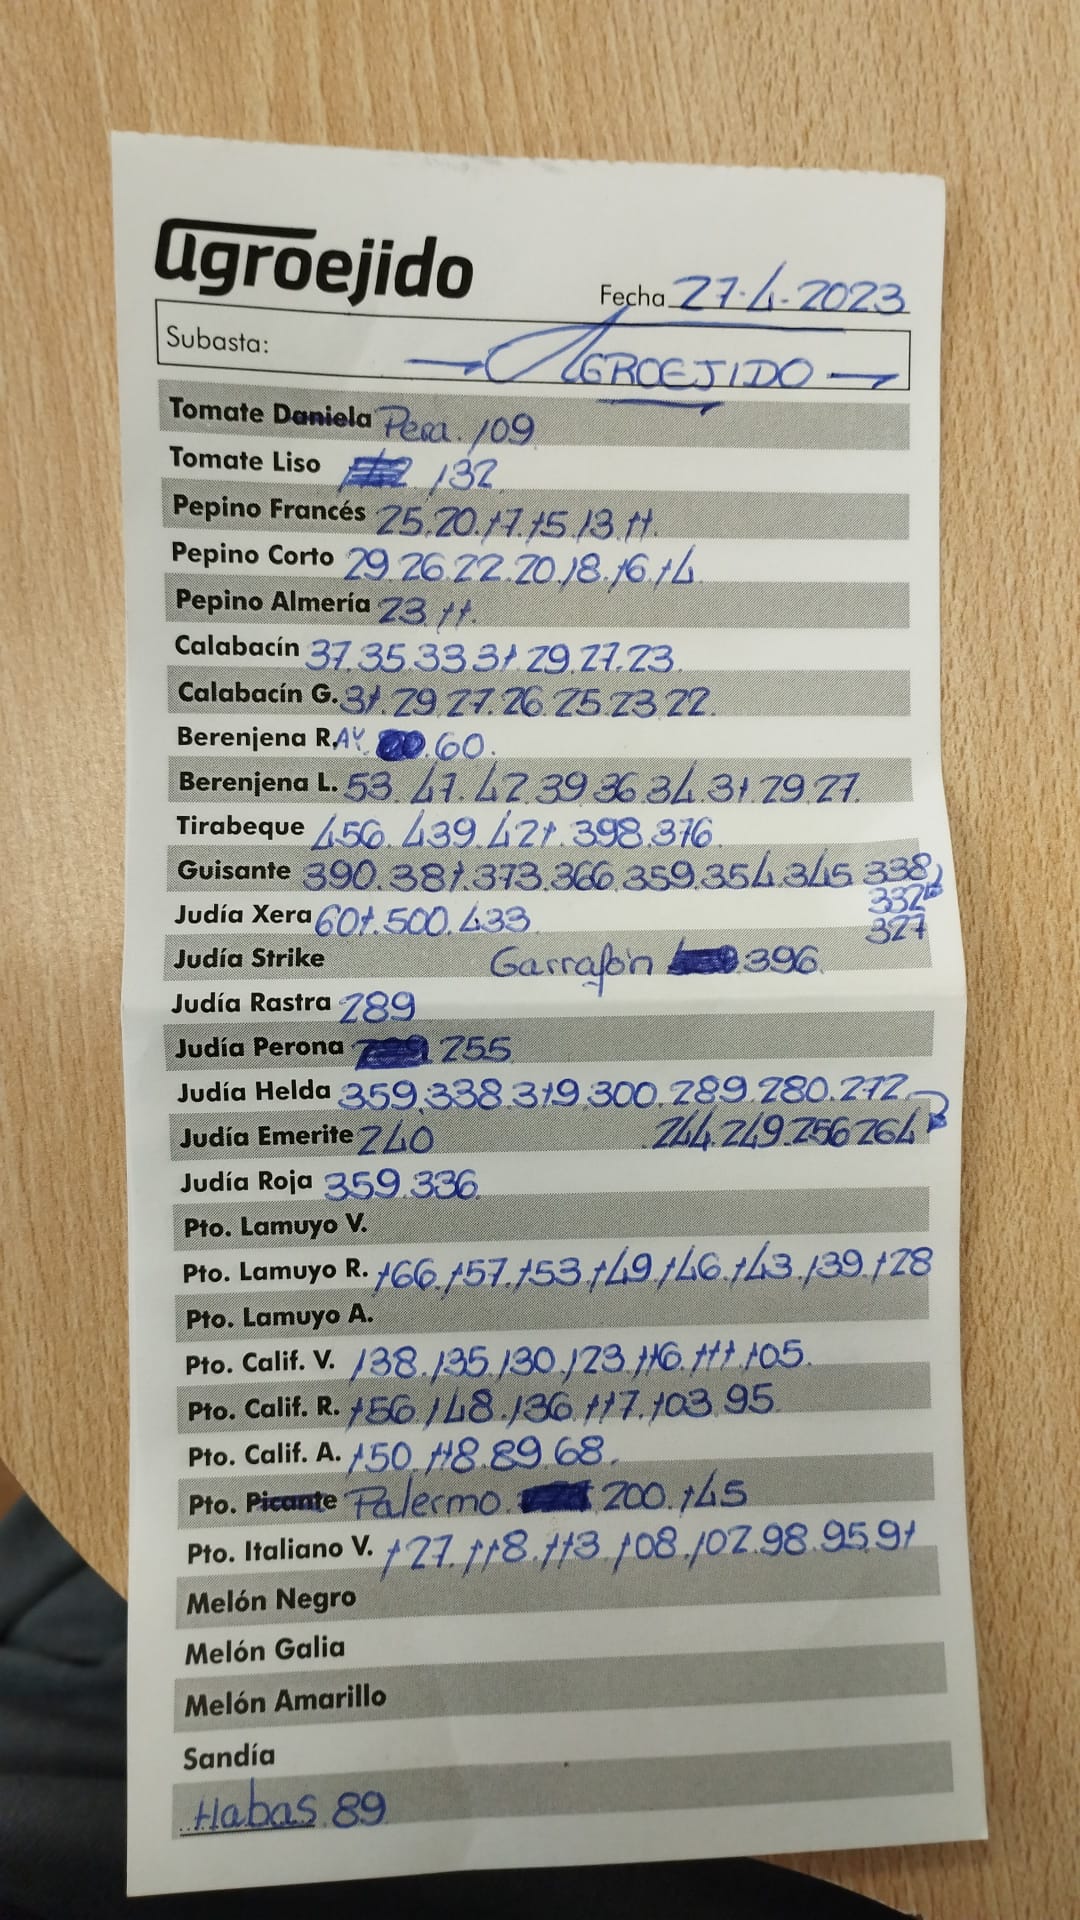 agroejido
Fecha 27-4-2023
Subasta: AGROEJIDO
Tomate Daniela Pera. 109
Tomate Liso 132
Pepino Francés 25.20.17.15.13.11.
Pepino Corto 29.26.22.20.18.16.14
Pepino Almería 23.11.
Calabacín 37.35.33.31.29.27.23.
Calabacín G. 31.29.27.26.25.23.22.
Berenjena R.AY. 60.
Berenjena L. 53.47.42.39.36.34.31.29.27.
Tirabeque 456.439.421.398.376.
Guisante 390.381.373.366.359.354.345.338
332
Judía Xera 601.500.433
327
Judía Strike Garrafón 396.
Judía Rastra 289
Judía Perona 255
Judía Helda 359.338.319.300.289.280.272
Judía Emerite 240 244.249.256.264
Judía Roja 359.336
Pto. Lamuyo V.
Pto. Lamuyo R. 166.157.153.149.146.143.139.128
Pto. Lamuyo A.
Pto. Calif. V. 138.135.130.123.116.111.105.
Pto. Calif. R. 156.148.136.117.103.95
Pto. Calif. A. 150.118.89.68.
Pto. Picante Palermo. 200.145
Pto. Italiano V. 127.118.113.108.102.98.95.91
Melón Negro
Melón Galia
Melón Amarillo
Sandía
Habas 89